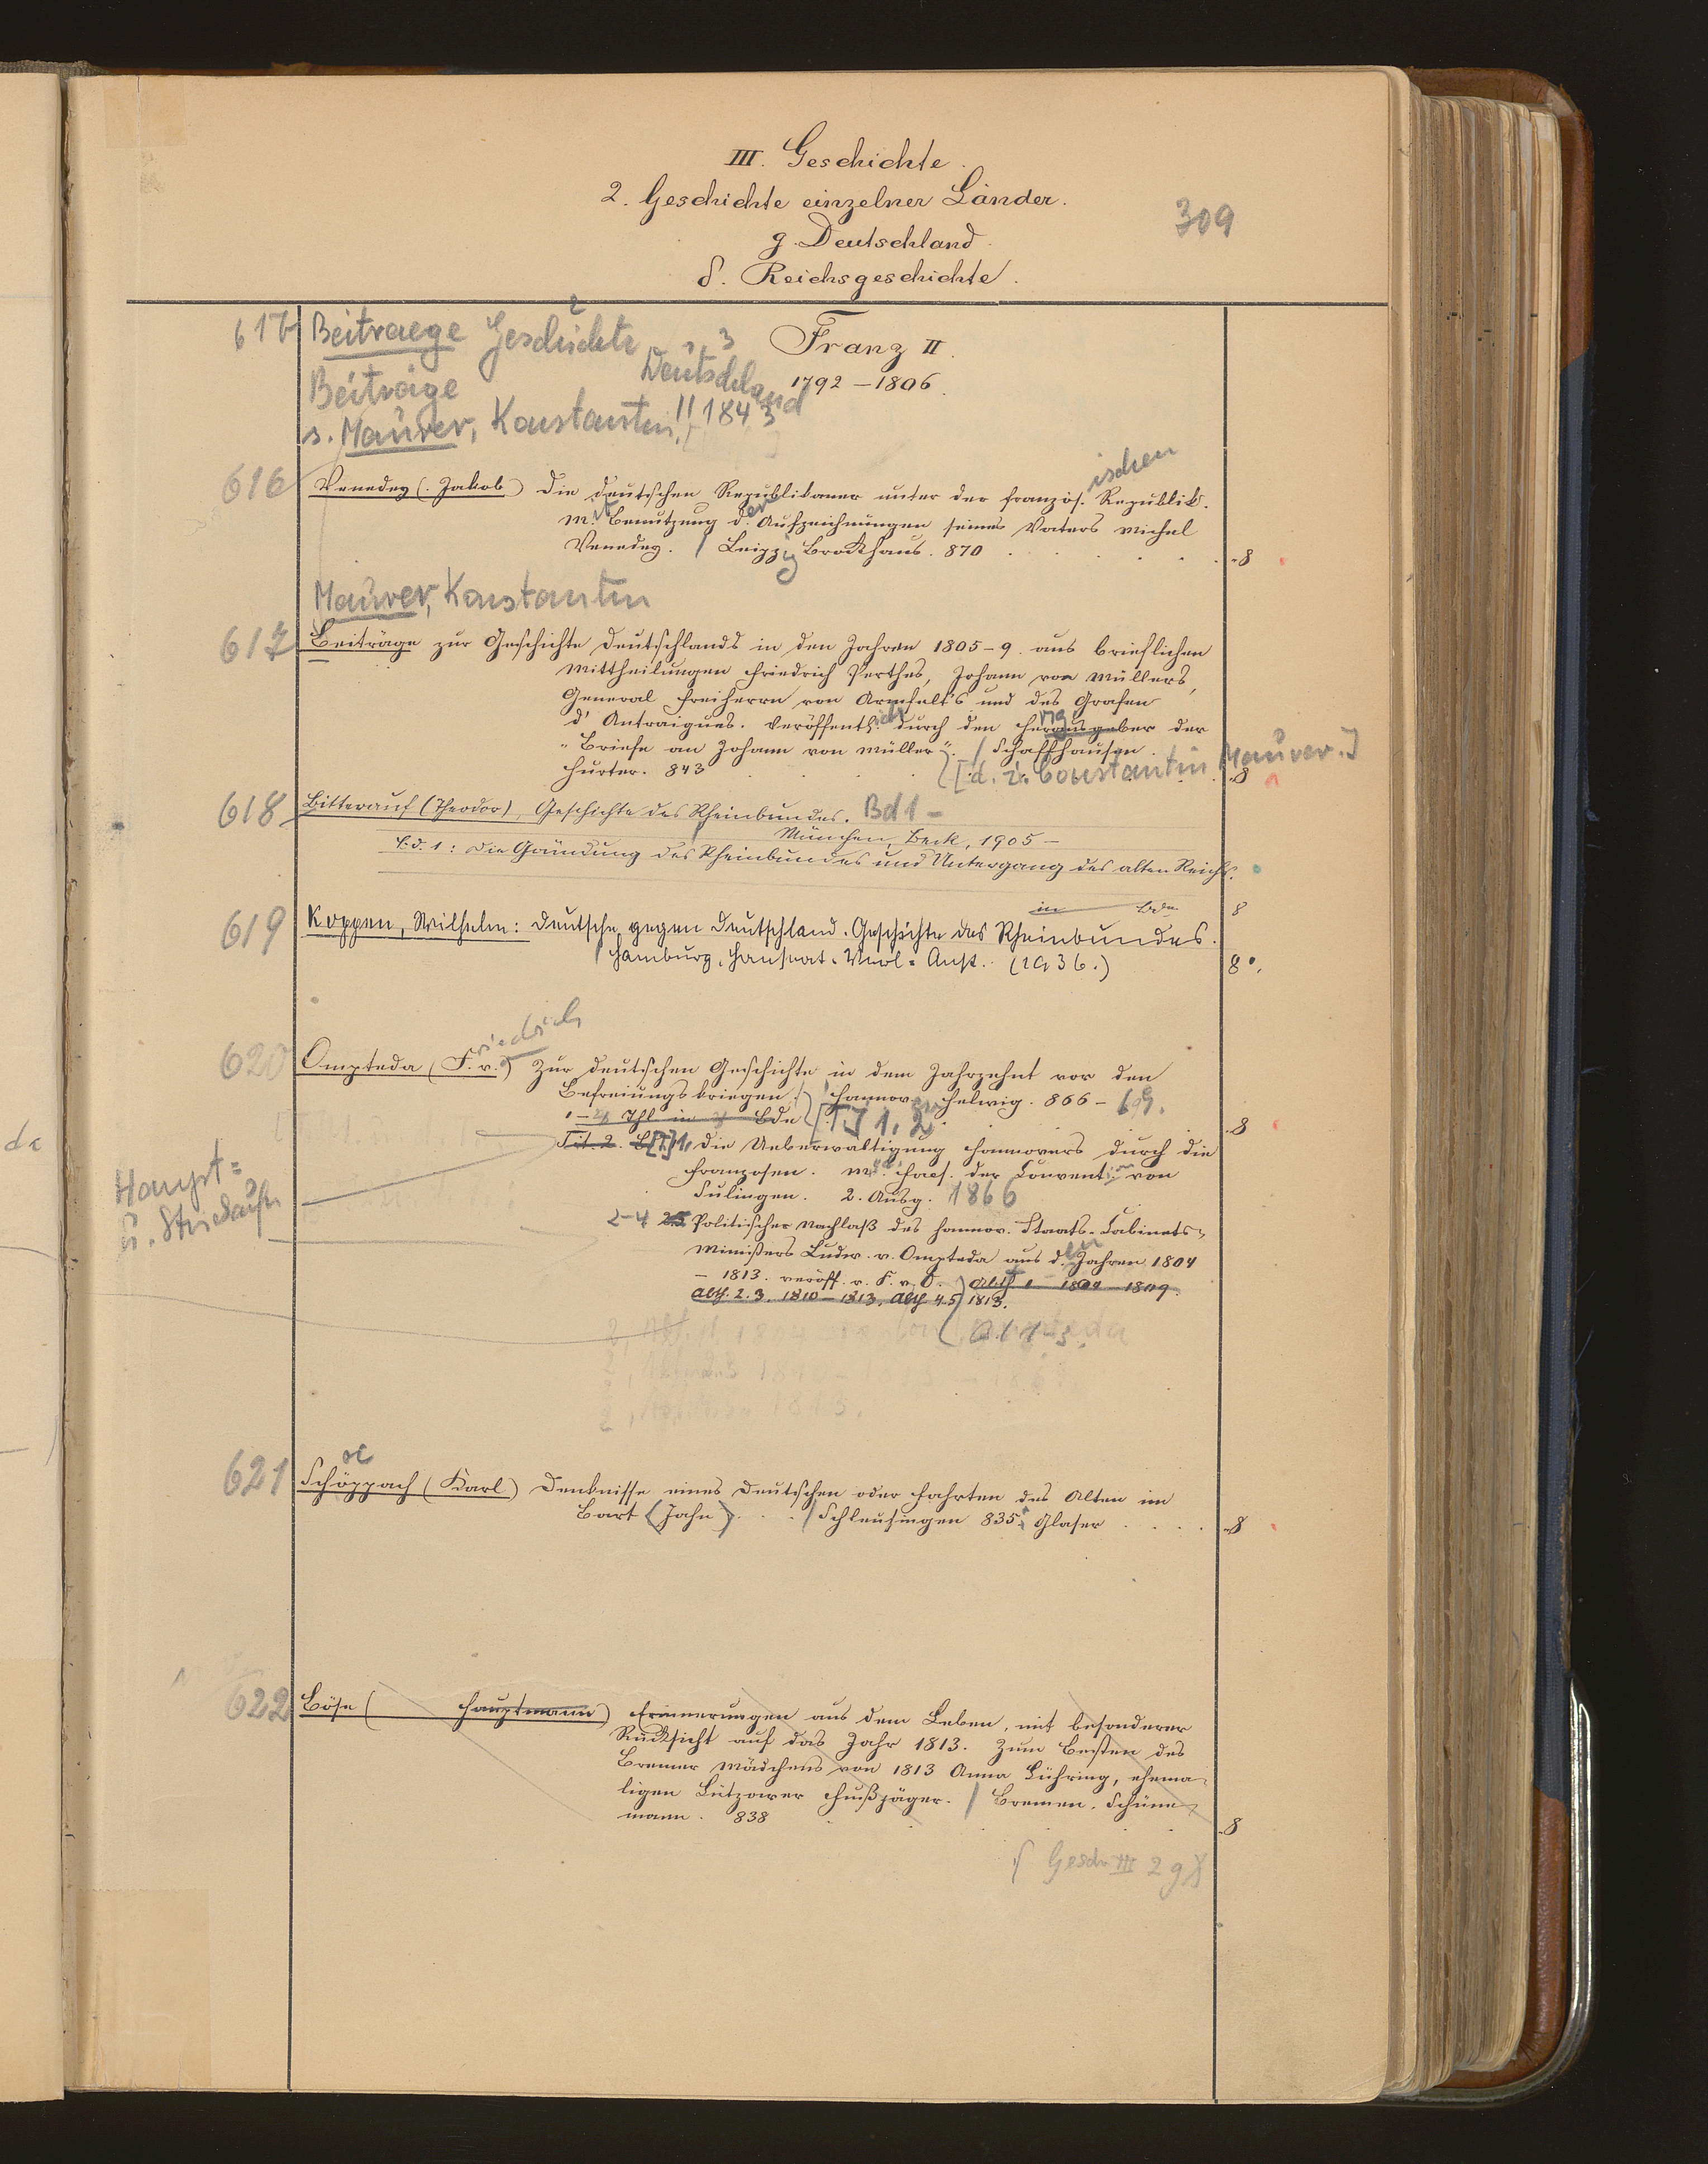 III. Geschichte.
2. Geschichte einzelner Länder.
309
g. Deutschland.
δ. Reichsgeschichte.
Beitraege Geschichte 2
1 3
Deutschland
Franz II.
1792 – 1806.
Beiträge
s. Maurer, Konstantin!! 1843
616 Venedey (Jakob) Die deutschen Republikaner unter der französ.ischen Republik.
M.it Benutzung d.er Aufzeichnungen seines Vaters Michel
Venedey. / Leipzig Brockhaus. 870 8
Maurer, Konstantin
617 Beiträge zur Geschichte Deutschlands in den Jahren 1805–9. aus brieflichen
Mittheilungen Friedrich Perthes, Johann von Müllers,
General Freiherrn von Armfelt's und des Grafen
d'Antraigues. Veröffentlicht durch den Herausgeber der
"Briefe an Johann von Müller". / Schaffhausen.
Hurter. 843 [d. i. Constantin Maurer.] 8
618 Bitterauf (Theodor), Geschichte des Rheinbundes. Bd 1 –
München, Beck, 1905 –
Bd. 1: Die Gründung des Rheinbundes und Untergang des alten Reichs.
in Bde 8
619 Koppen, Wilhelm: Deutsche gegen Deutschland. Geschichte des Rheinbundes.
Hamburg, Hanseat. Verl.-Anst. (1936.) 8°.
620 Ompteda (F.riedrich v.) Zur deutschen Geschichte in dem Jahrzehnt vor den
Befreiungskriegen. / Hannover Helwig. 866 – 69.
1–4 Thl in 3 Bde [T.] 1. 2. 8
Tit. 2. [T.] 1, Die Ueberwältigung Hannovers durch die
Franzosen. M. Facs. der Convention von
Sulingen. 2. Ausg. 1866
Haupt-
u.
2–4 Politischer Nachlaß des hannov. Staats- Cabinets-
Ministers Ludw. v. Ompteda aus d.en Jahren 1804
– 1813. veröff. v. F. v. O. Abth 1 1804 – 1809.
Abth. 2. 3. 1810 – 1813, Abth 4.5 1813.
621 Schöppach (Karl) Denknisse eines Deutschen oder Fahrten des Alten im
oe
Bart (Jahn). / Schleusingen 835. Glaser 8
622 Böse ( Hauptmann) Erinnerungen aus dem Leben, mit besonderer
Rücksicht auf das Jahr 1813. Zum Besten des
Bremer Mädchens von 1813 Anna Lühring, ehema-
ligen Lützower Fußjäger. / Bremen. Schüne-
mann. 838 8
Gesch III 2 g